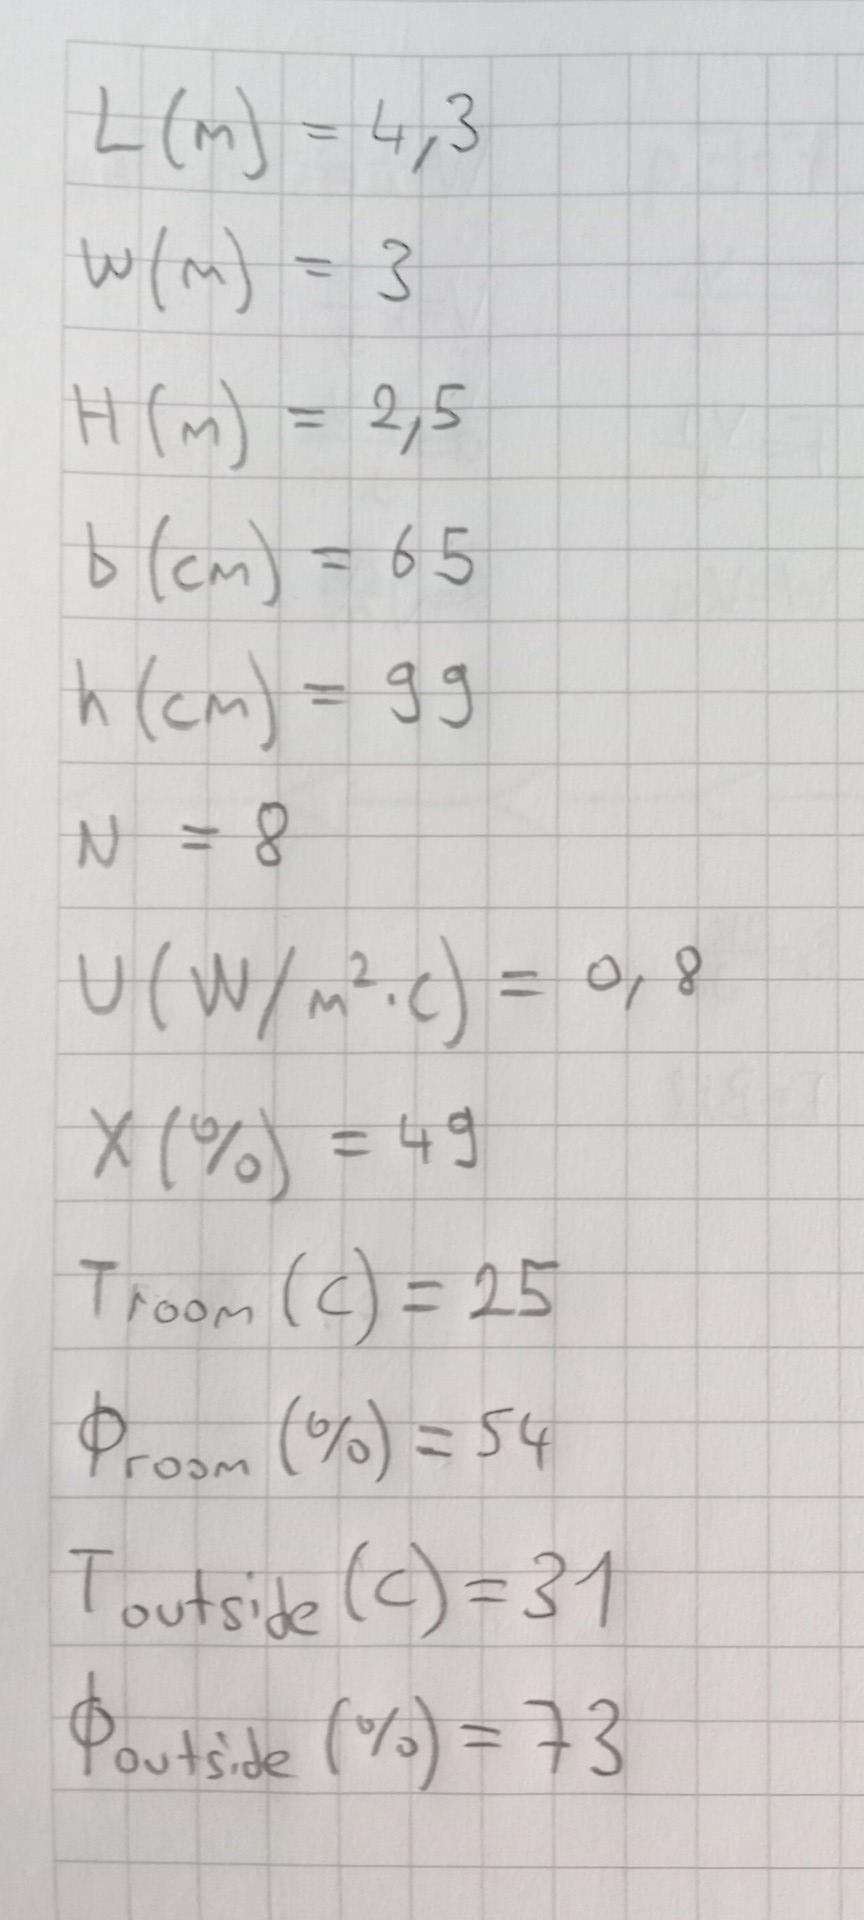 L (m) = 4,3
W (m) = 3
H (m) = 2,5
b (cm) = 65
h (cm) = 99
N = 8
U (W/m²·C) = 0,8
X (%) = 49
Troom (C) = 25
ϕroom (%) = 54
Toutside (C) = 31
ϕoutside (%) = 73